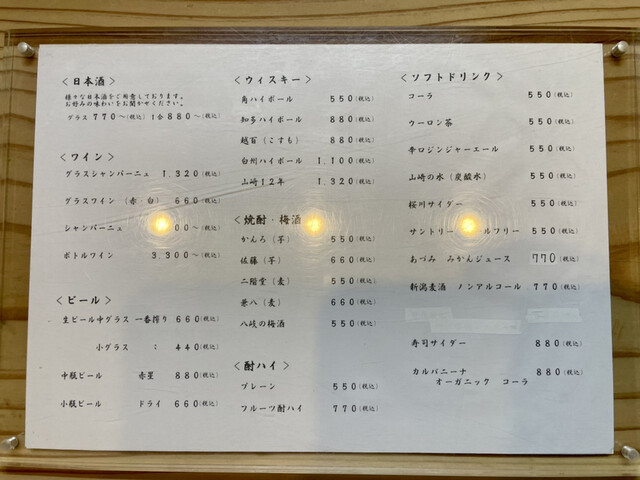 ＜日本酒＞
様々な日本酒をご用意しております。
お好みの味わいをお聞かせください。
グラス 770〜(税込) 1合 880〜(税込)
＜ワイン＞
グラスシャンパーニュ 1,320(税込)
グラスワイン (赤・白) 660(税込)
シャンパーニュ 00〜(税込)
ボトルワイン 3,300〜(税込)
＜ビール＞
生ビール中グラス 一番搾り 660(税込)
小グラス : 440(税込)
中瓶ビール 赤星 880(税込)
小瓶ビール ドライ 660(税込)
＜ウィスキー＞
角ハイボール 550(税込)
知多ハイボール 880(税込)
越百 (こすも) 880(税込)
白州ハイボール 1,100(税込)
山崎12年 1,320(税込)
＜焼酎・梅酒
かんろ (芋) 550(税込)
佐藤 (芋) 660(税込)
二階堂 (麦) 550(税込)
兼八 (麦) 660(税込)
八岐の梅酒 550(税込)
＜酎ハイ＞
プレーン 550(税込)
フルーツ酎ハイ 770(税込)
＜ソフトドリンク＞
コーラ 550(税込)
ウーロン茶 550(税込)
辛口ジンジャーエール 550(税込)
山崎の水 (炭酸水) 550(税込)
桜川サイダー 550(税込)
サントリー ールフリー 550(税込)
あづみ みかんジュース 770(税込)
新潟麦酒 ノンアルコール 770(税込)
寿司サイダー 880(税込)
カルパニーナ 880(税込)
オーガニック コーラ